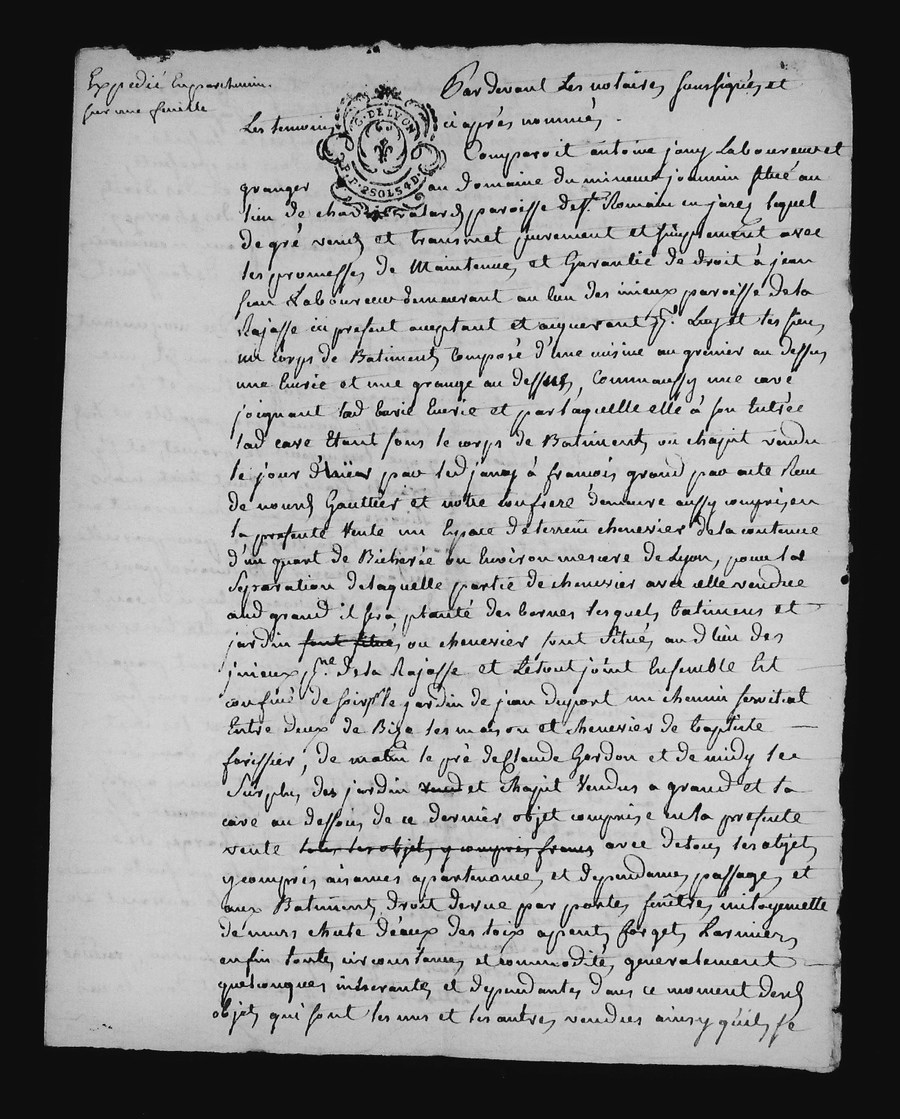 Expedié en parchemin
sur une feuille
Par devant Les notaires soussignés et
Les temoins ci après nommés .
G. DE LYON
P.P. 2 SOLS 4 D.
Comparoit antoine jany Laboureur et
granger au domaine du mineur joannin situé au
lieu de paroisse de St. Romain en jarez lequel
de gré vend et transmet purement et simplement avec
les promesses de Maintenue et Garantie de droit à jean
Laboureur demeurant au lieu des inieux paroisse de la
Rajasse ici present aceptant et aquerant pr. Luy et les siens
un Corps de Batiments Composé d'une cuisine au grenier au dessus
une Ecurie et une grange au dessus, Comm'aussy une cave
joignant lad Ecurie et par laquelle elle à son Entrée
lad cave Etant sous le corps de Batiments ou chapit vendu
le jour d'hier par led janny à francois grand par acte Recu
de nousd Gauttier et notre confrere demeure aussy compris en
la presente Vente un Espace de terrein chenevier de la contenue
d'un quart de Bicherée ou Environ mesure de Lyon, pour la
Separation de laquelle partie de chenevier avec celle vendue
aud grand il sera planté des bornes lesquels batimens et
jardin sont situés ou chenevier sont situés aud lieu des
inieux psse. De la Rajasse et Le tout joint Ensemble Est
confiné de soir le jardin de jean dupont un chemin servical
Entre deux de Bize les maison et chenevier de baptiste
forissier, de matin le pré de Claude Gordon et de midy le
Surplus des jardin et Chapit Vendus a grand et la
cave au dessous de ce dernier objet comprise en la presente
vente tous les objets y compris francs avec de tous les objets
y compris aisances apartenances et dependances passages et
aux Batiments Droit de vue par portes fenêtres mitoyennette
de murs chute d'eaux des toix apents forgets Larmiers
enfin toutes circonstances et commodités generalement
quelconques inherantes et dependantes dans ce moment desd
objets qui sont les uns et les autres vendus ainsy qu'ils se